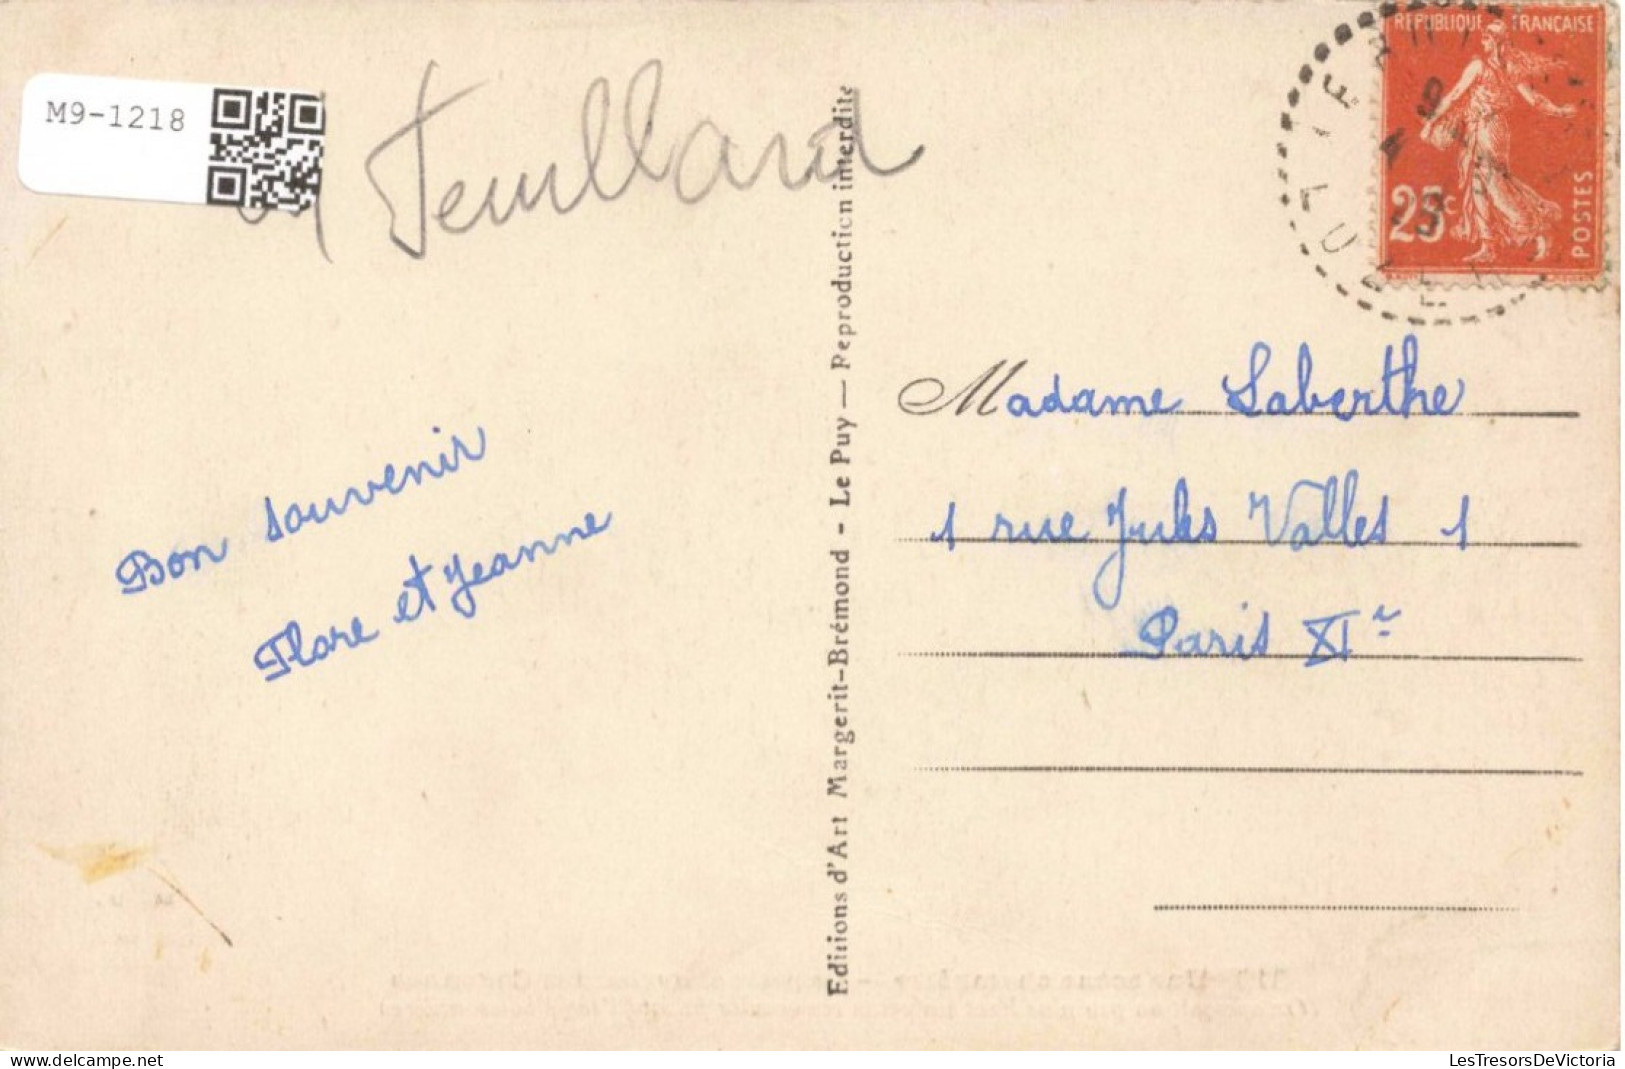 M9-1218
Feuillard
REPUBLIQUE FRANÇAISE
25c
POSTES
Madame Laberthe
1 rue Jules Valles 1
Paris XIe
Bon souvenir
Flore et Jeanne
Editions d'Art Margerit-Brémond - Le Puy — Reproduction interdite
LesTresorsDeVictoria